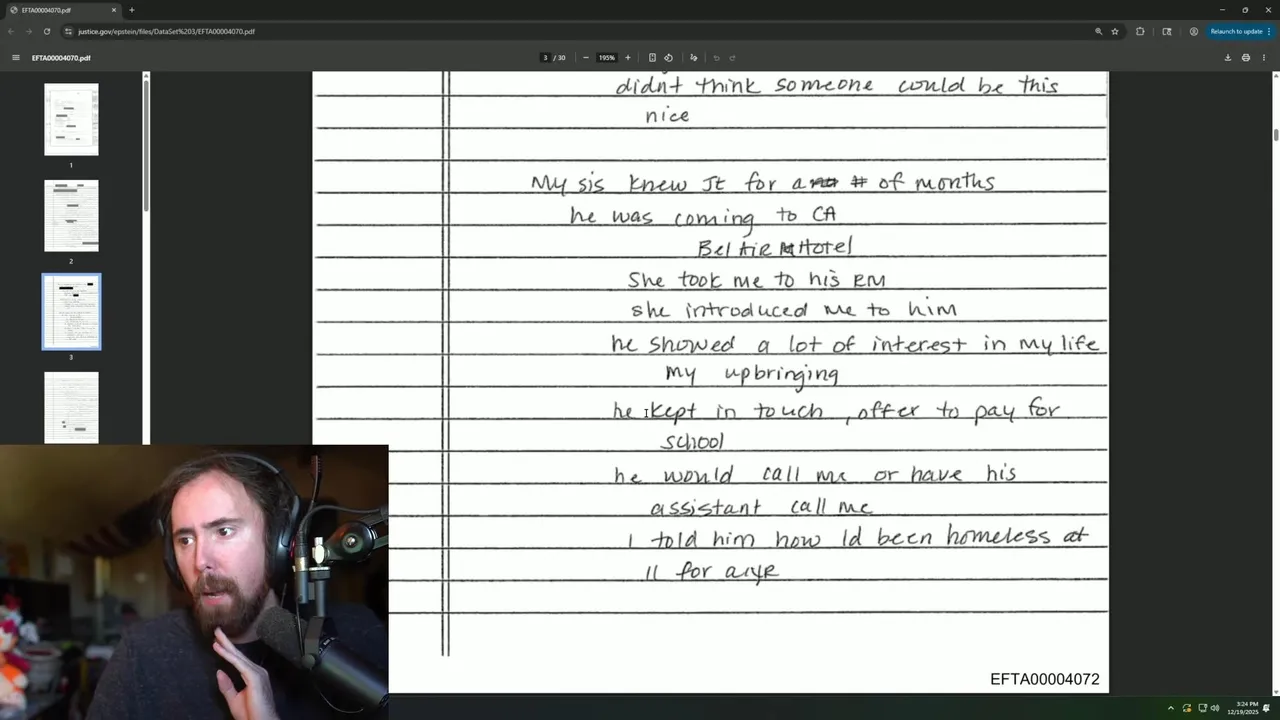 EFTA00004070.pdf
justice.gov/epstein/files/DataSet%203/EFTA00004070.pdf
Relaunch to update
EFTA00004070.pdf
3 / 30
195%
didnt think someone could be this
nice
My sis knew JE for a # of months
he was coming to CA
Bel Air Hotel
She took me to his RM
she introduced me to him
he showed a lot of interest in my life
my upbringing
he kept in touch, offer to pay for
school
he would call me or have his
assistant call me
I told him how Id been homeless at
11 for a yR
EFTA00004072
1
2
3
3:24 PM
12/19/2025